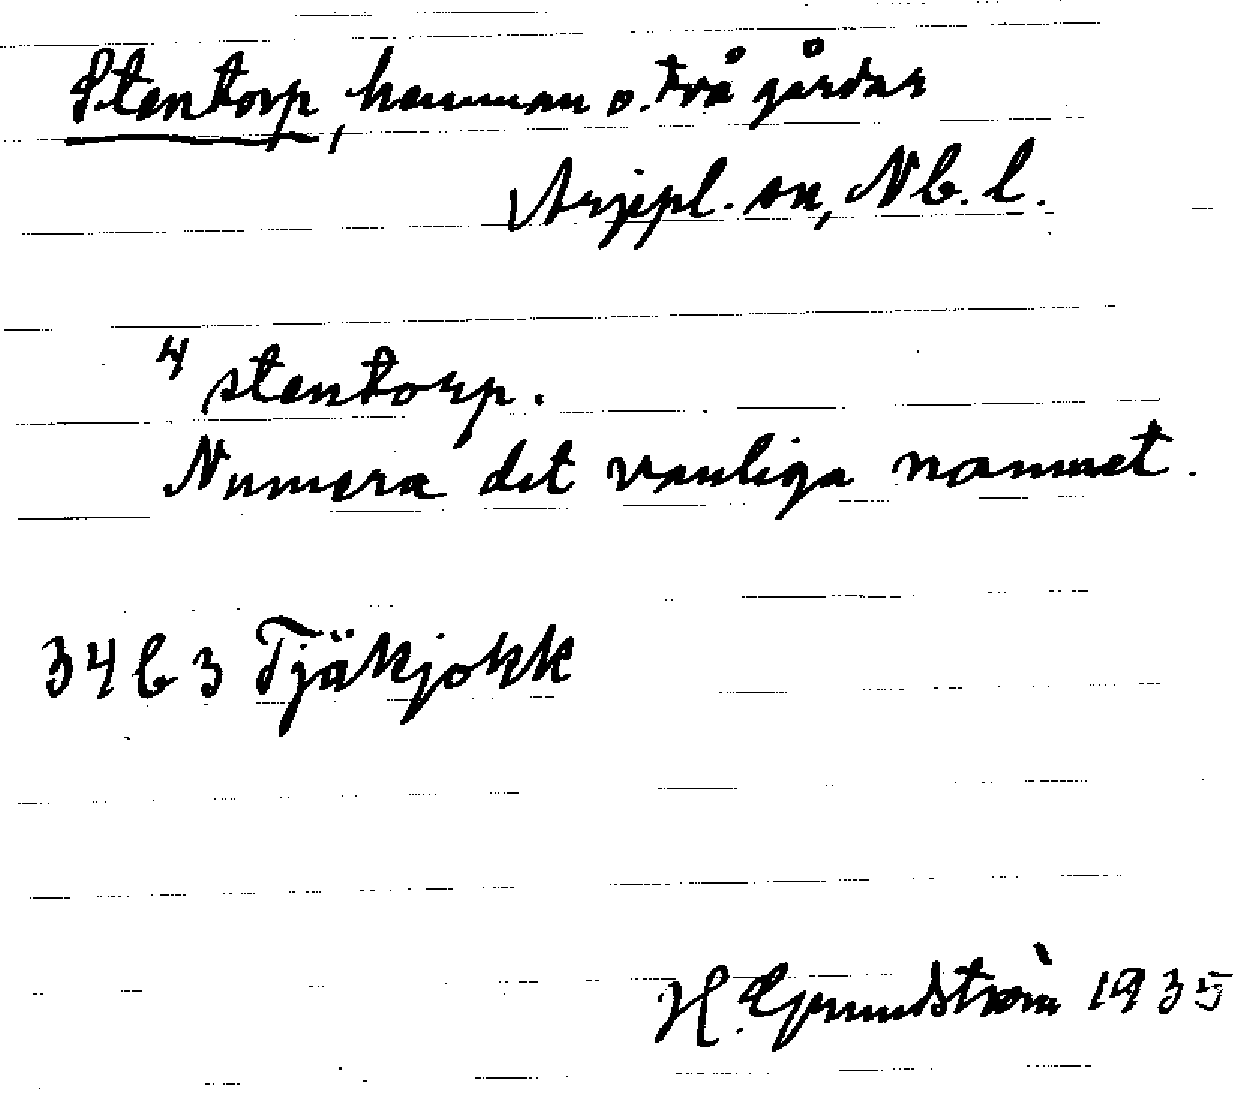 Stentorp, hemman o. två gårdar
Arjepl. sn, Nb. l.
4 stentorp.
Numera det vanliga namnet.
34 b 3 Tjäkjokk
H. Grundström 1935